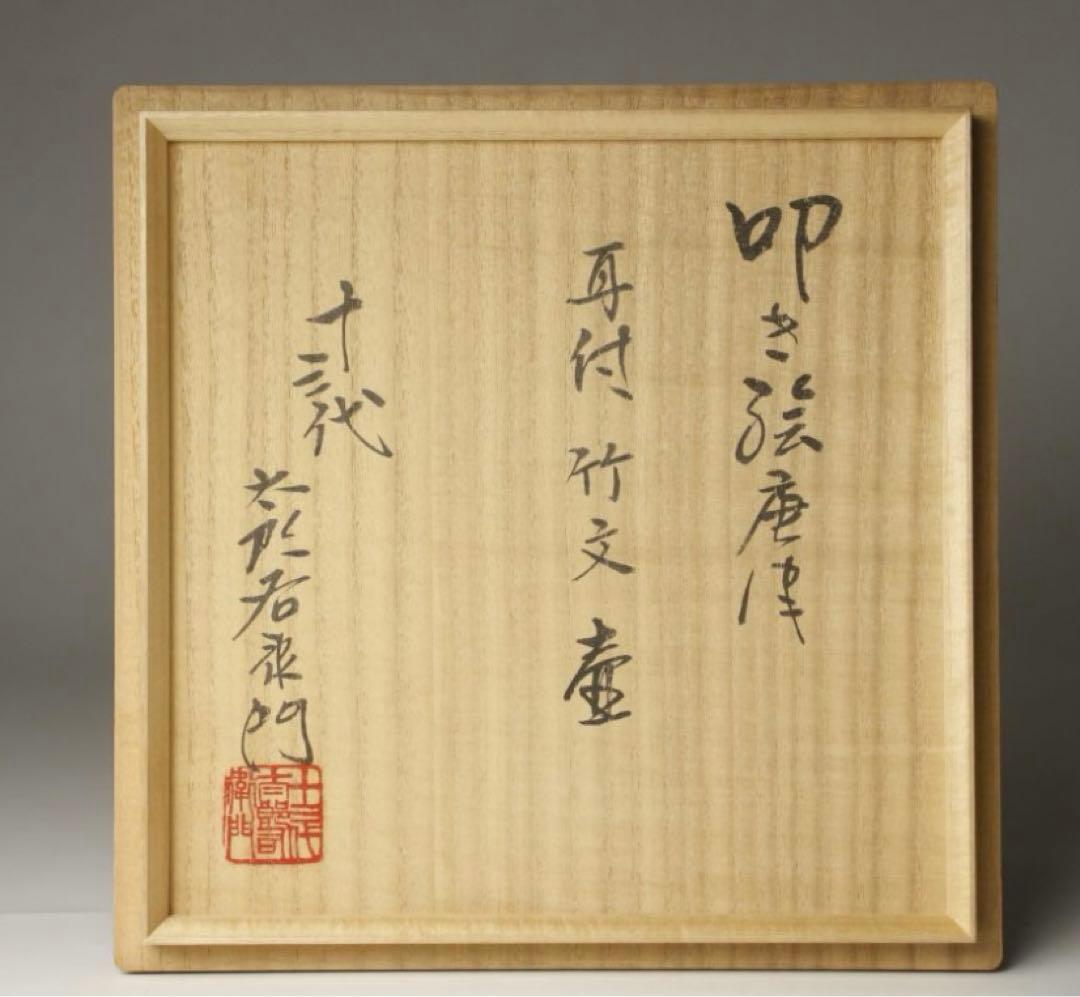 叩き絵唐津
耳付 竹文 壷
十三代
太郎右衛門